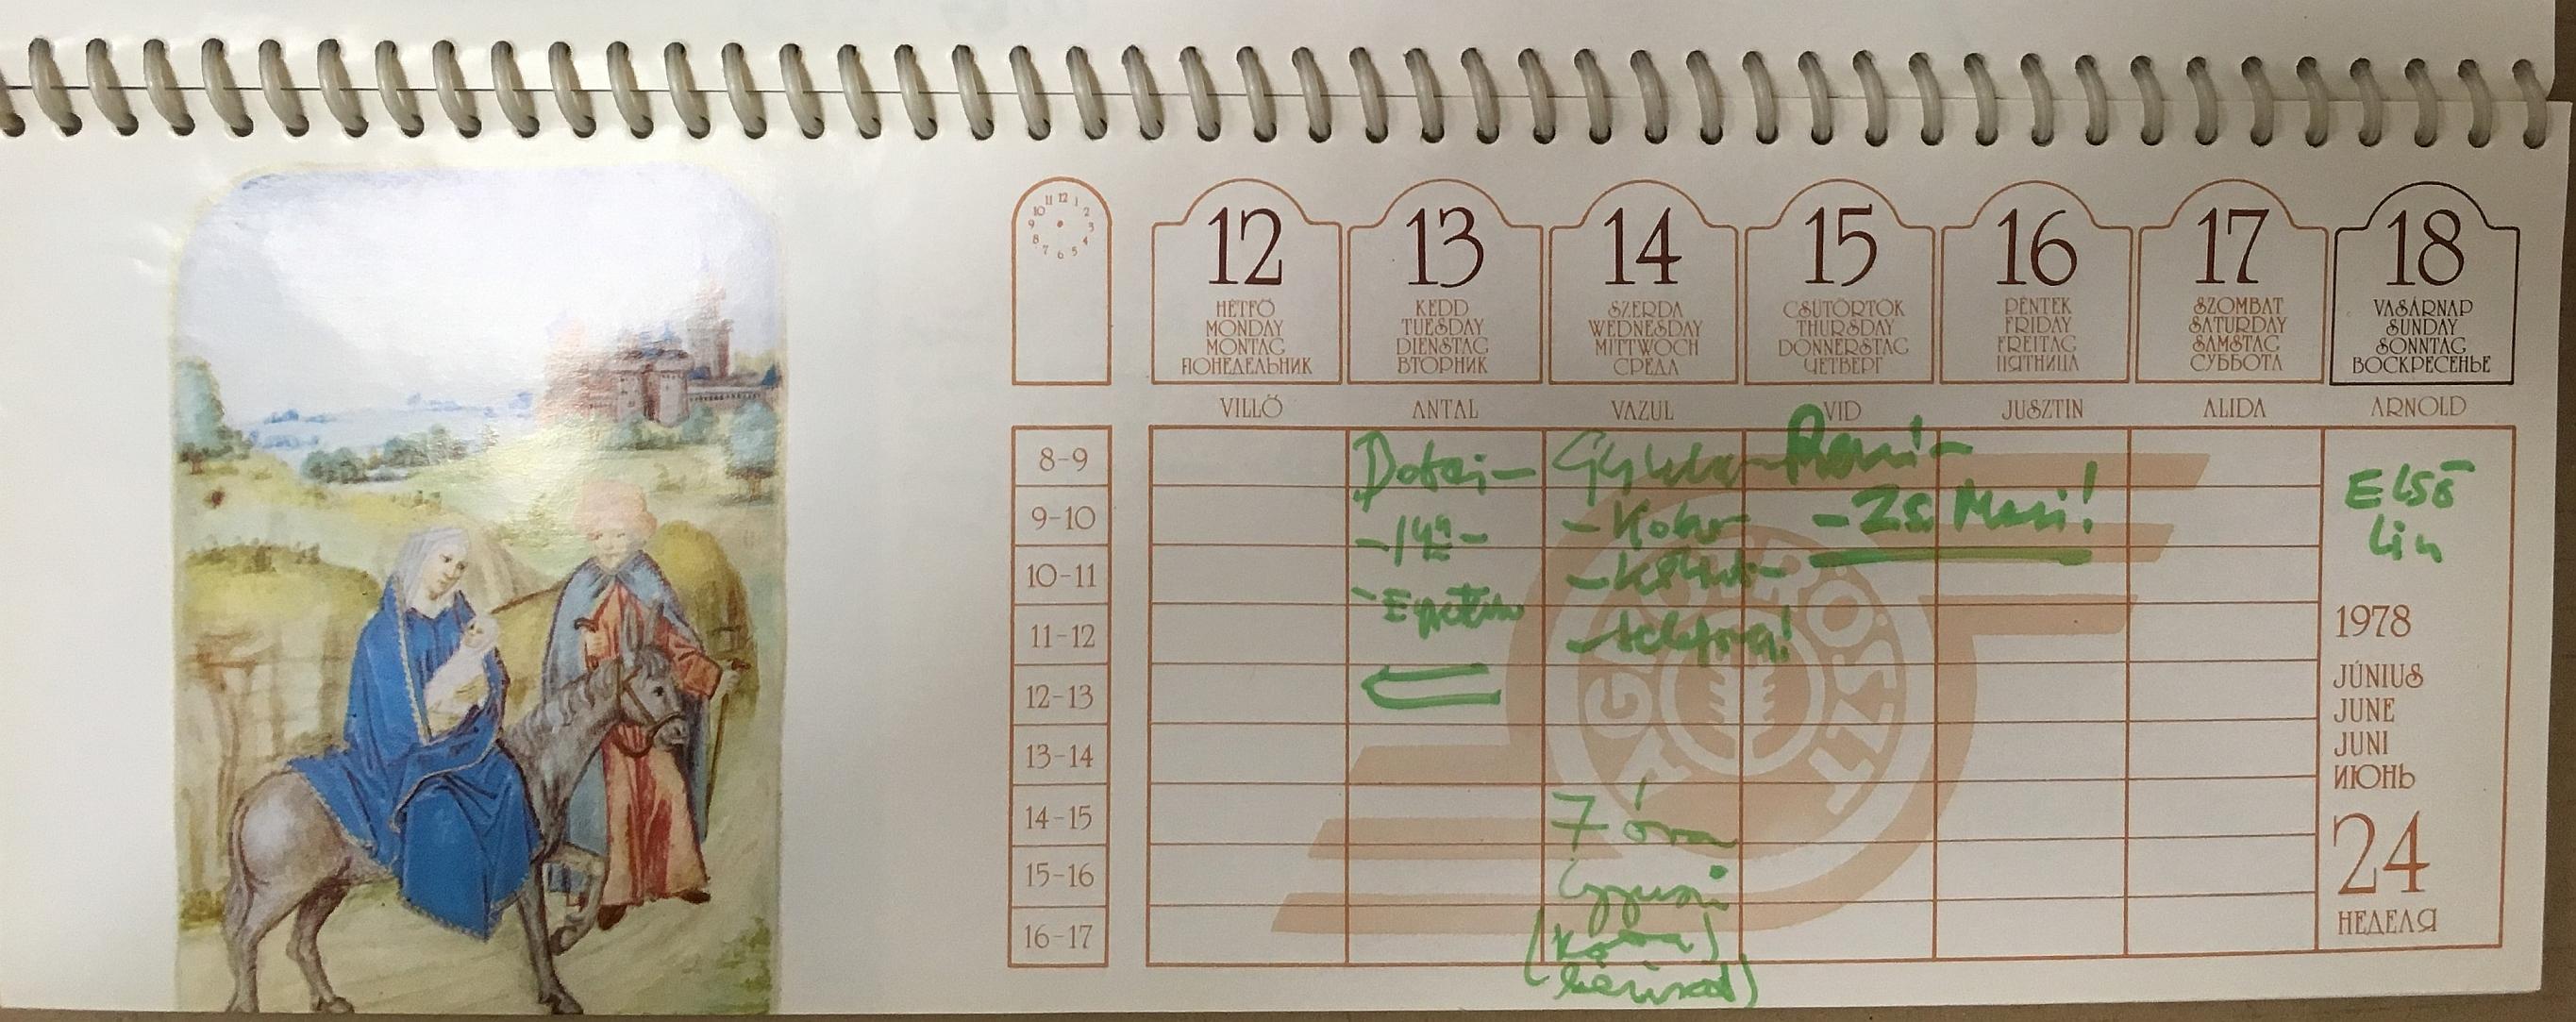 11 12 1
10 2
9 3
8 4
7 6 5
12 13 14 15 16 17 18
HÉTFŐ KEDD SZERDA CSÜTÖRTÖK PÉNTEK SZOMBAT VASÁRNAP
MONDAY TUESDAY WEDNESDAY THURSDAY FRIDAY SATURDAY SUNDAY
MONTAG DIENSTAG MITTWOCH DONNERSTAG FREITAG SAMSTAG SONNTAG
ПОНЕДЕЛЬНИК ВТОРНИК СРЕДА ЧЕТВЕРГ ПЯТНИЦА СУББОТА ВОСКРЕСЕНЬЕ
VILLŐ ANTAL VAZUL VID JUSZTIN ALIDA ARNOLD
8-9
9-10
- Zs. Mari!
10-11
11-12
- telefon!
12-13
13-14
14-15
7 óra
15-16
16-17
Első
1978
JÚNIUS
JUNE
JUNI
ИЮНЬ
24
НЕДЕЛЯ